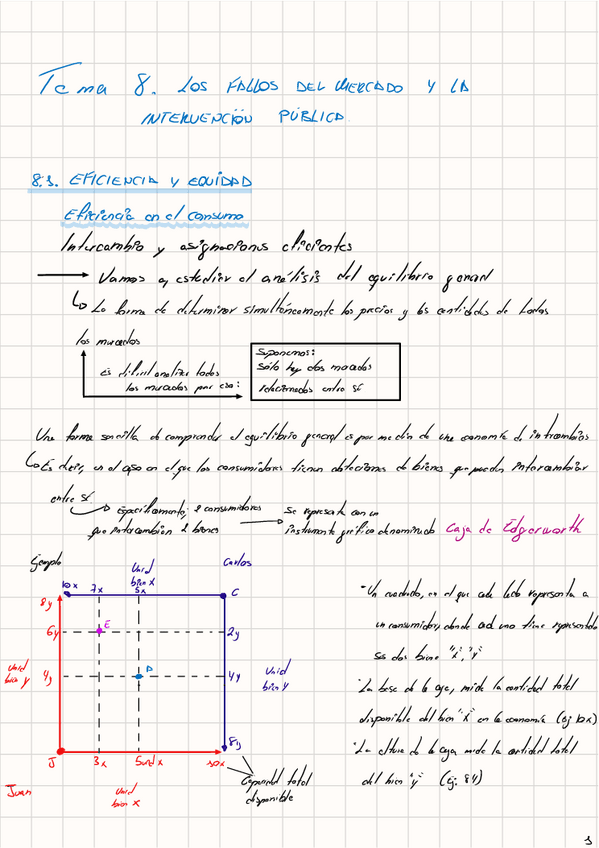 Tema 8. LOS FALLOS DEL MERCADO Y LA
INTERVENCIÓN PÚBLICA
8.1. EFICIENCIA Y EQUIDAD
Eficiencia en el consumo
Intercambio y asignaciones eficientes
Vamos a estudiar el análisis del equilibrio general
La forma de determinar simultáneamente los precios y las cantidades de todos
los mercados
Es difícil analizar todos
los mercados por eso:
Suponemos:
Sólo hay dos mercados
relacionados entre sí
Una forma sencilla de comprender el equilibrio general es por medio de una economía de intercambios
Es decir, en el caso en el que los consumidores tienen dotaciones de bienes que pueden intercambiar
entre sí
Específicamente, 2 consumidores
que intercambian 2 bienes
Se representa con un
instrumento gráfico denominado Caja de Edgerworth
Ejemplo
Unid
bien x
Carlos
10x
7x
5x
C
8y
6y
E
2y
Unid
bien y
4y
D
4y
Unid
bien y
8y
J
3x
5und x
10x
Juan
Unid
bien x
Capacidad total
disponible
- Un cuadrado, en el que cada lado representa a
un consumidor, donde cad uno tiene representado
sus dos biene "x", "y"
- La base de la caja, mide la cantidad total
disponible del bien "x" en la economía (ej 10x)
- La altura de la caja mide la cantidad total
del bien "y" (ej. 8y)
1